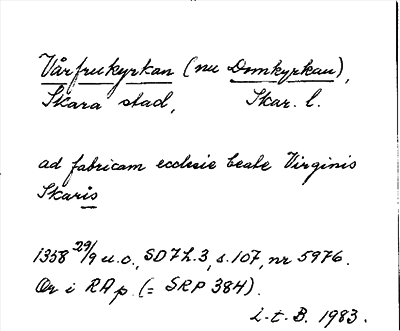 Vårfrukyrkan (nu Domkyrkan),
Skara stad, Skar. l.
ad fabricam ecclesie beate Virginis
Skaris
1358 29/9 u.o., SD 7 h.3, s.107, nr 5976.
Or i RAp. (= SRP 384).
L.t.B. 1983.